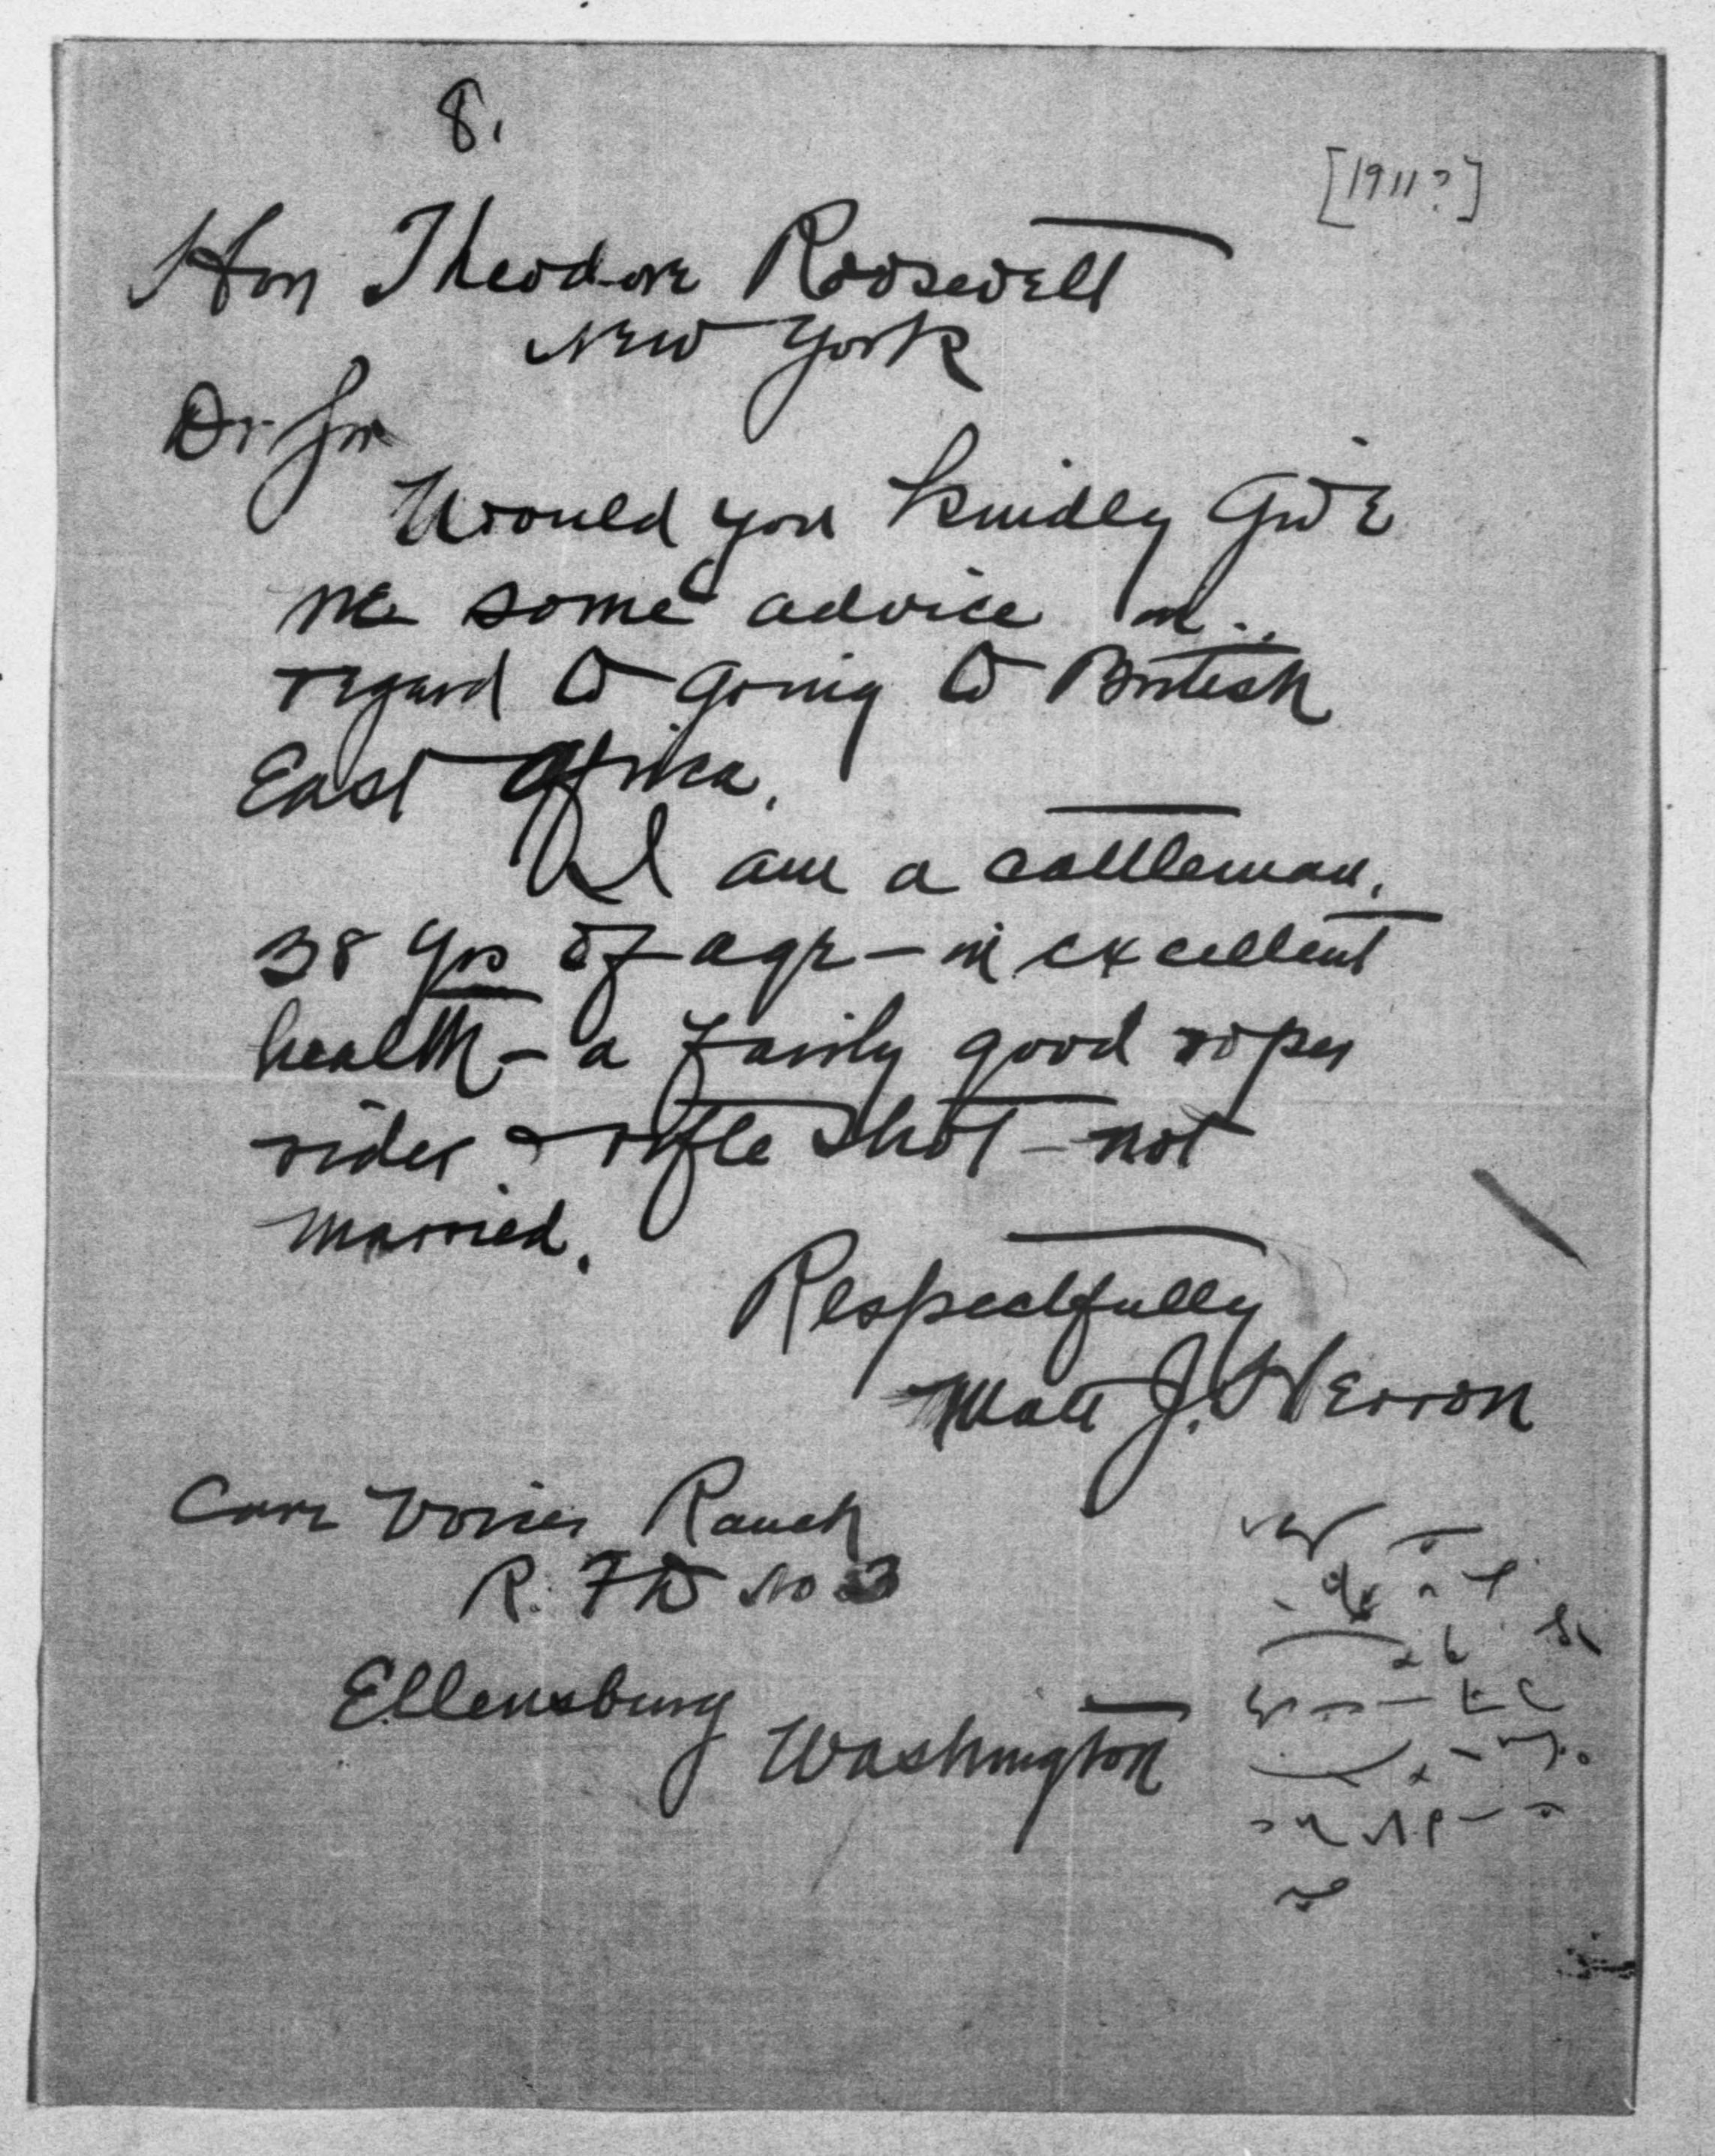 8.
[1911?]
Hon Theodore Roosevelt
New York
Dr Sir
Would you kindly give
me some advice in
regard to going to British
East Africa.
I am a cattleman.
38 yrs of age – in excellent
health – a fairly good roper
rider & rifle shot – not
married.
Respectfully
Matt J. Herron
Care Ranch
R. F D No 3
Ellensburg
Washington